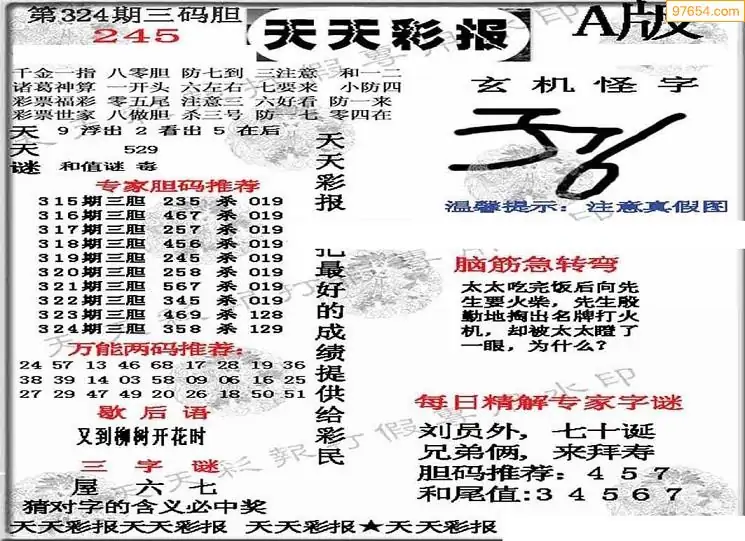 第324期三码胆
245
天天彩报
A版
97654.com
千金一指 八零胆 防七到 三注意 和一二
诸葛神算 一开头 六左右 七要来 小防四
彩票福彩 零五尾 注意三 六好看 防一来
彩票世家 八做胆 杀三号 防一七 零四在
天 9 浮出 2 看出 5 在后
天 529
谜 和值谜 毒
专家胆码推荐
315期三胆 235 杀 019
316期三胆 467 杀 019
317期三胆 257 杀 019
318期三胆 456 杀 019
319期三胆 245 杀 019
320期三胆 258 杀 019
321期三胆 567 杀 019
322期三胆 345 杀 019
323期三胆 469 杀 128
324期三胆 358 杀 129
万能两码推荐:
24 57 13 46 68 17 28 19 36
38 39 14 03 58 09 06 16 25
27 29 47 49 20 26 18 50 51
歇后语
又到柳树开花时
三字谜
屋 六 七
猜对字的含义必中奖
天天彩报
最好的成绩提供给彩民
玄机怪字
温馨提示: 注意真假图
脑筋急转弯
太太吃完饭后向先
生要火柴,先生殷
勤地掏出名牌打火
机,却被太太瞪了
一眼,为什么?
每日精解专家字谜
刘员外,七十诞
兄弟俩,来拜寿
胆码推荐:457
和尾值:34567
天天彩报天天彩报 天天彩报★天天彩报